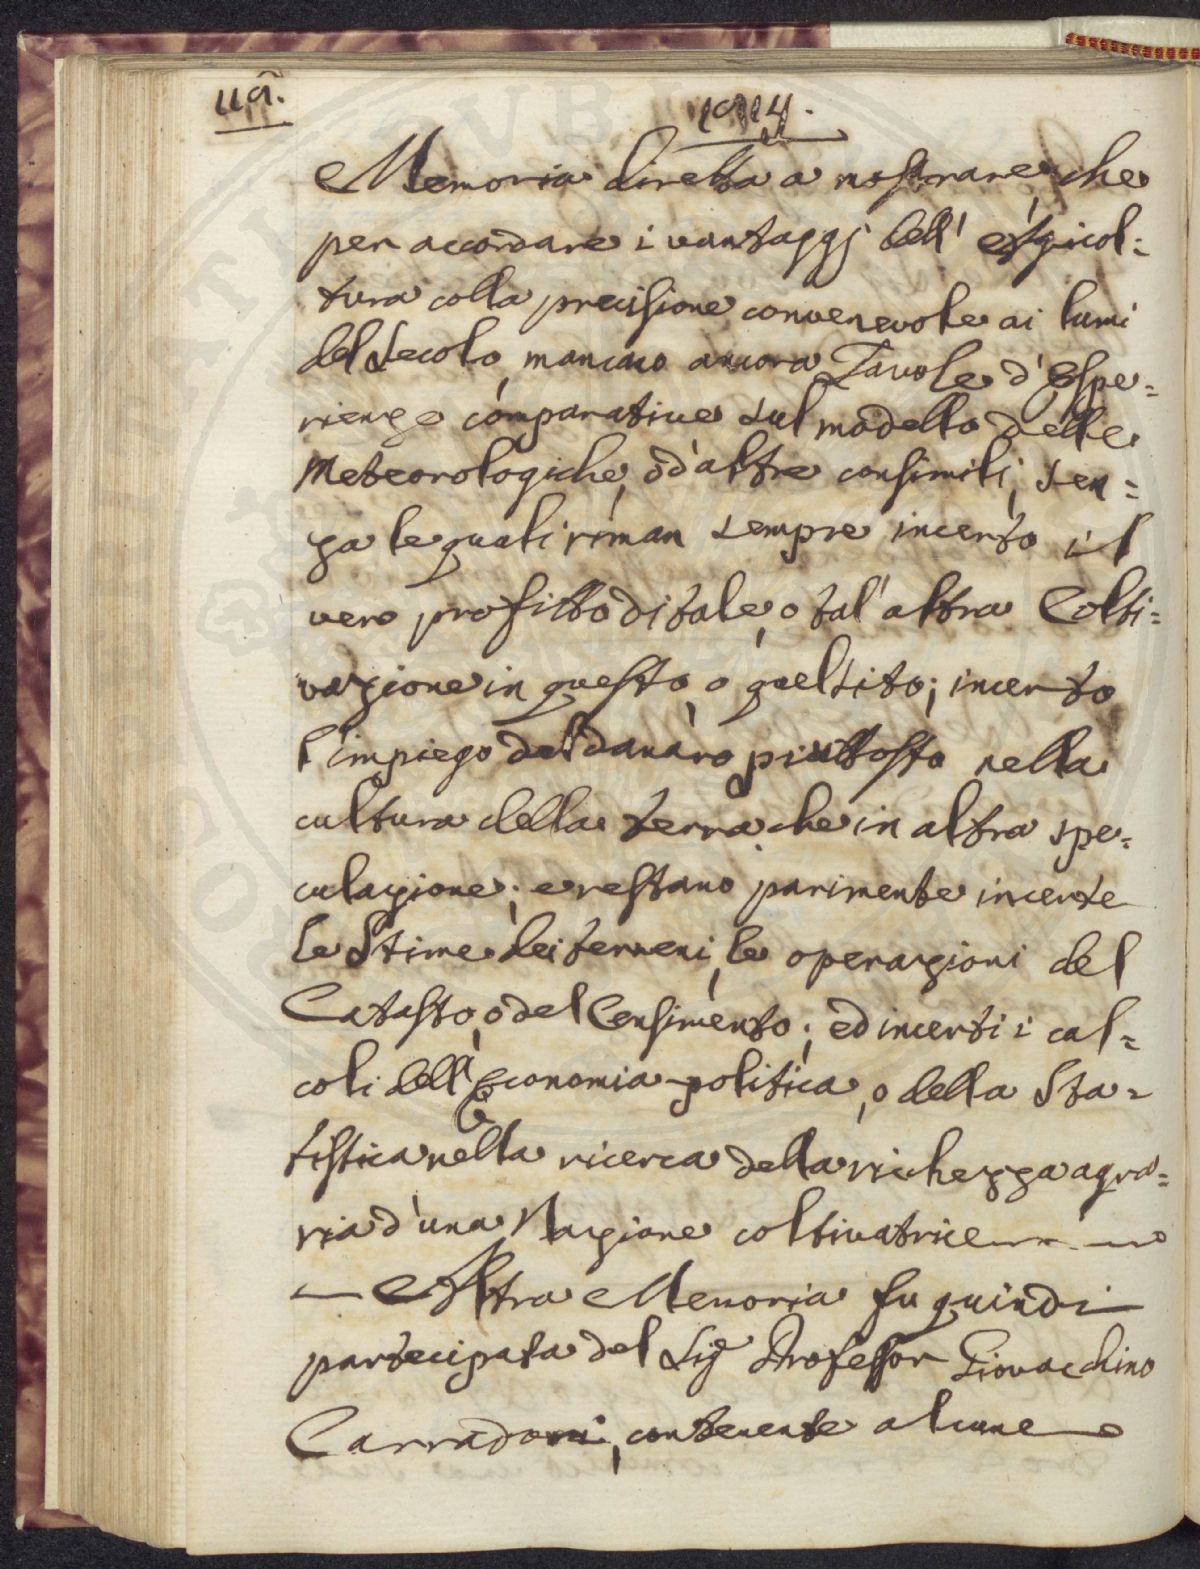 1814.
Memoria diretta a mostrare che
per accordare i vantaggj dell' Agricol=
tura colla precisione convenevole ai lumi
del Secolo, mancano ancora Tavole d'Espe=
rienze comparative sul modello delle
Meteorologiche, o d'altre consimili, sen=
za le quali riman sempre incerto il
vero profitto di tale, o tal'altra Colti=
vazione in questo, o quel sito; incerto
l'impiego del danaro piuttosto nella
cultura della terra che in altra spe=
culazione; e restano parimente incerte
le Stime dei terreni, le operazioni del
Catasto, o del Censimento; ed incerti i cal=
coli dell'Economia politica, o della Sta=
tistica nella ricerca della richezza agra=
ria d'una Nazione coltivatrice
Altra Memoria fu quindi
partecipata del Sig Professor Giovacchino
Carradori, contenente alcune